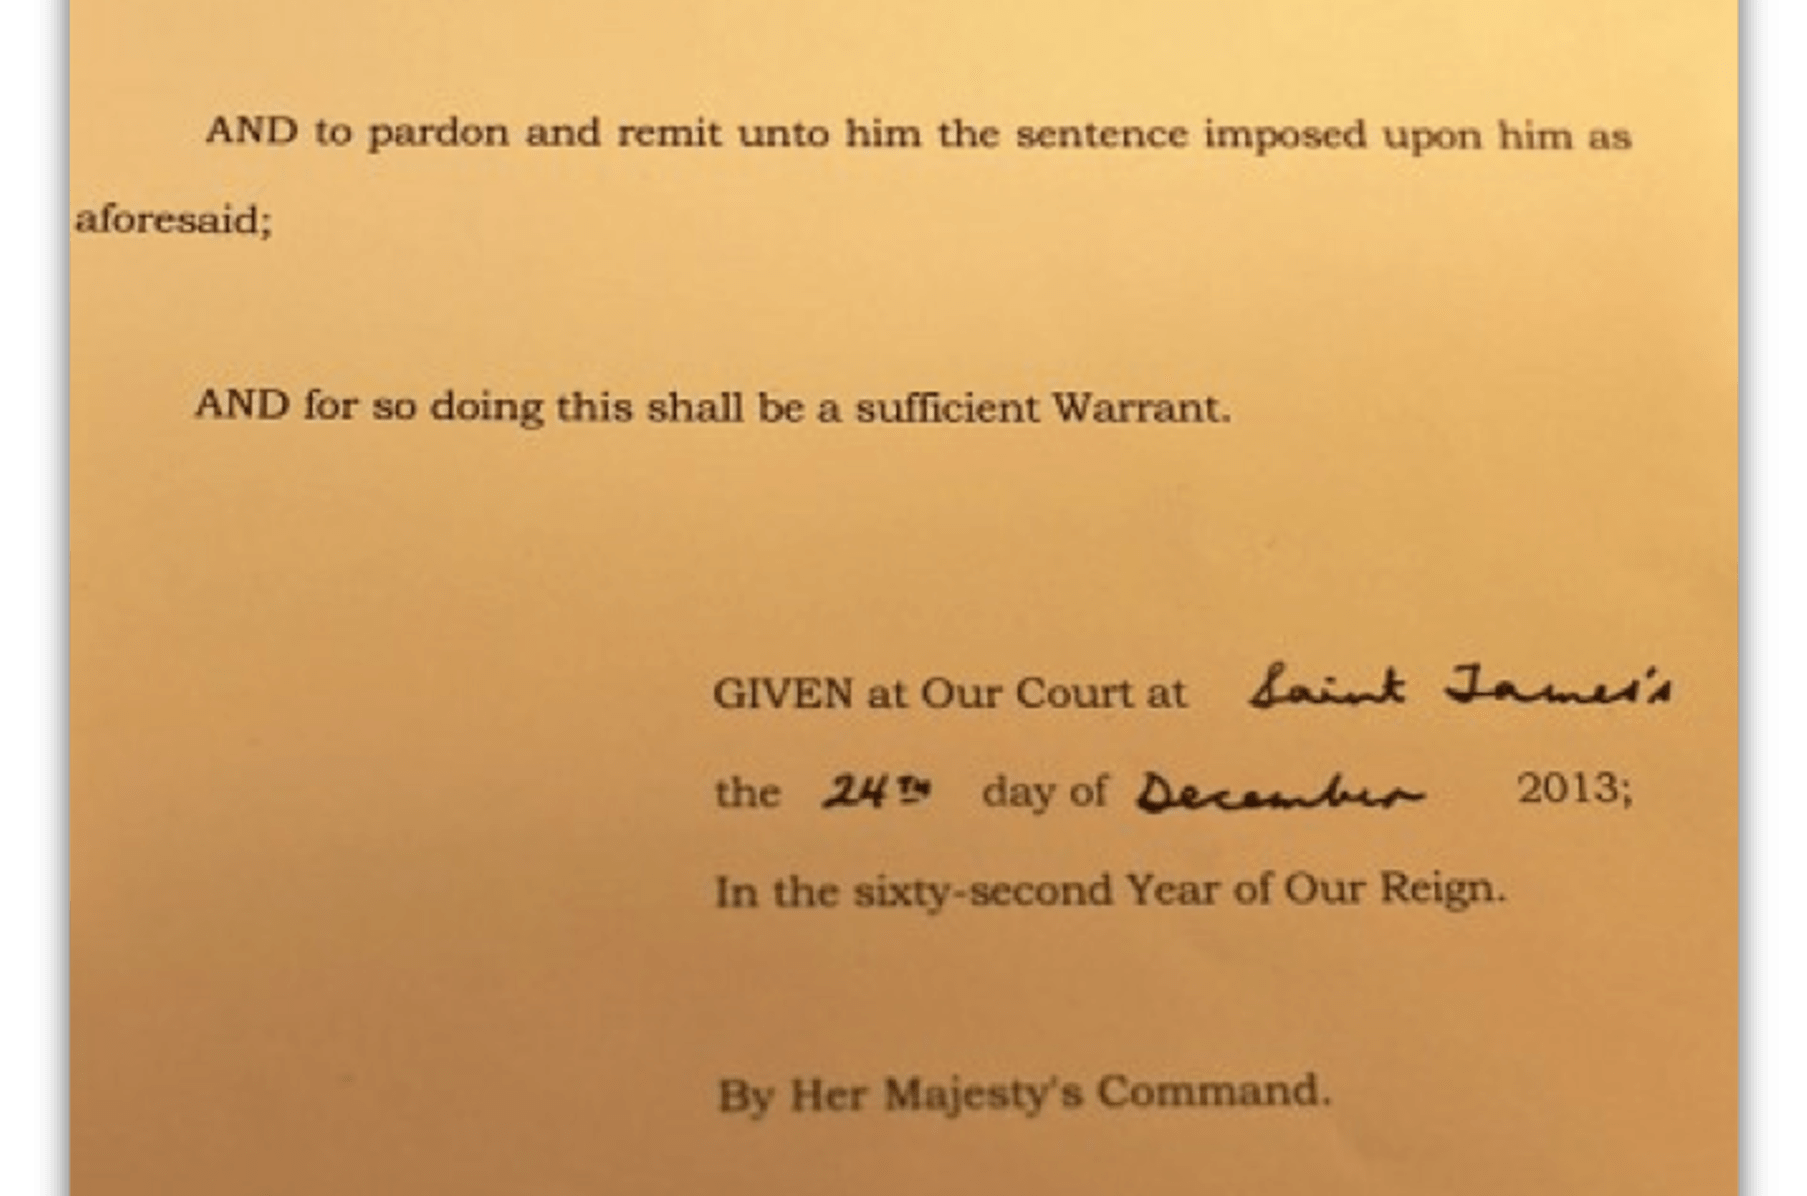 AND to pardon and remit unto him the sentence imposed upon him as
aforesaid;
AND for so doing this shall be a sufficient Warrant.
GIVEN at Our Court at Saint James's
the 24TH day of December 2013;
In the sixty-second Year of Our Reign.
By Her Majesty's Command.